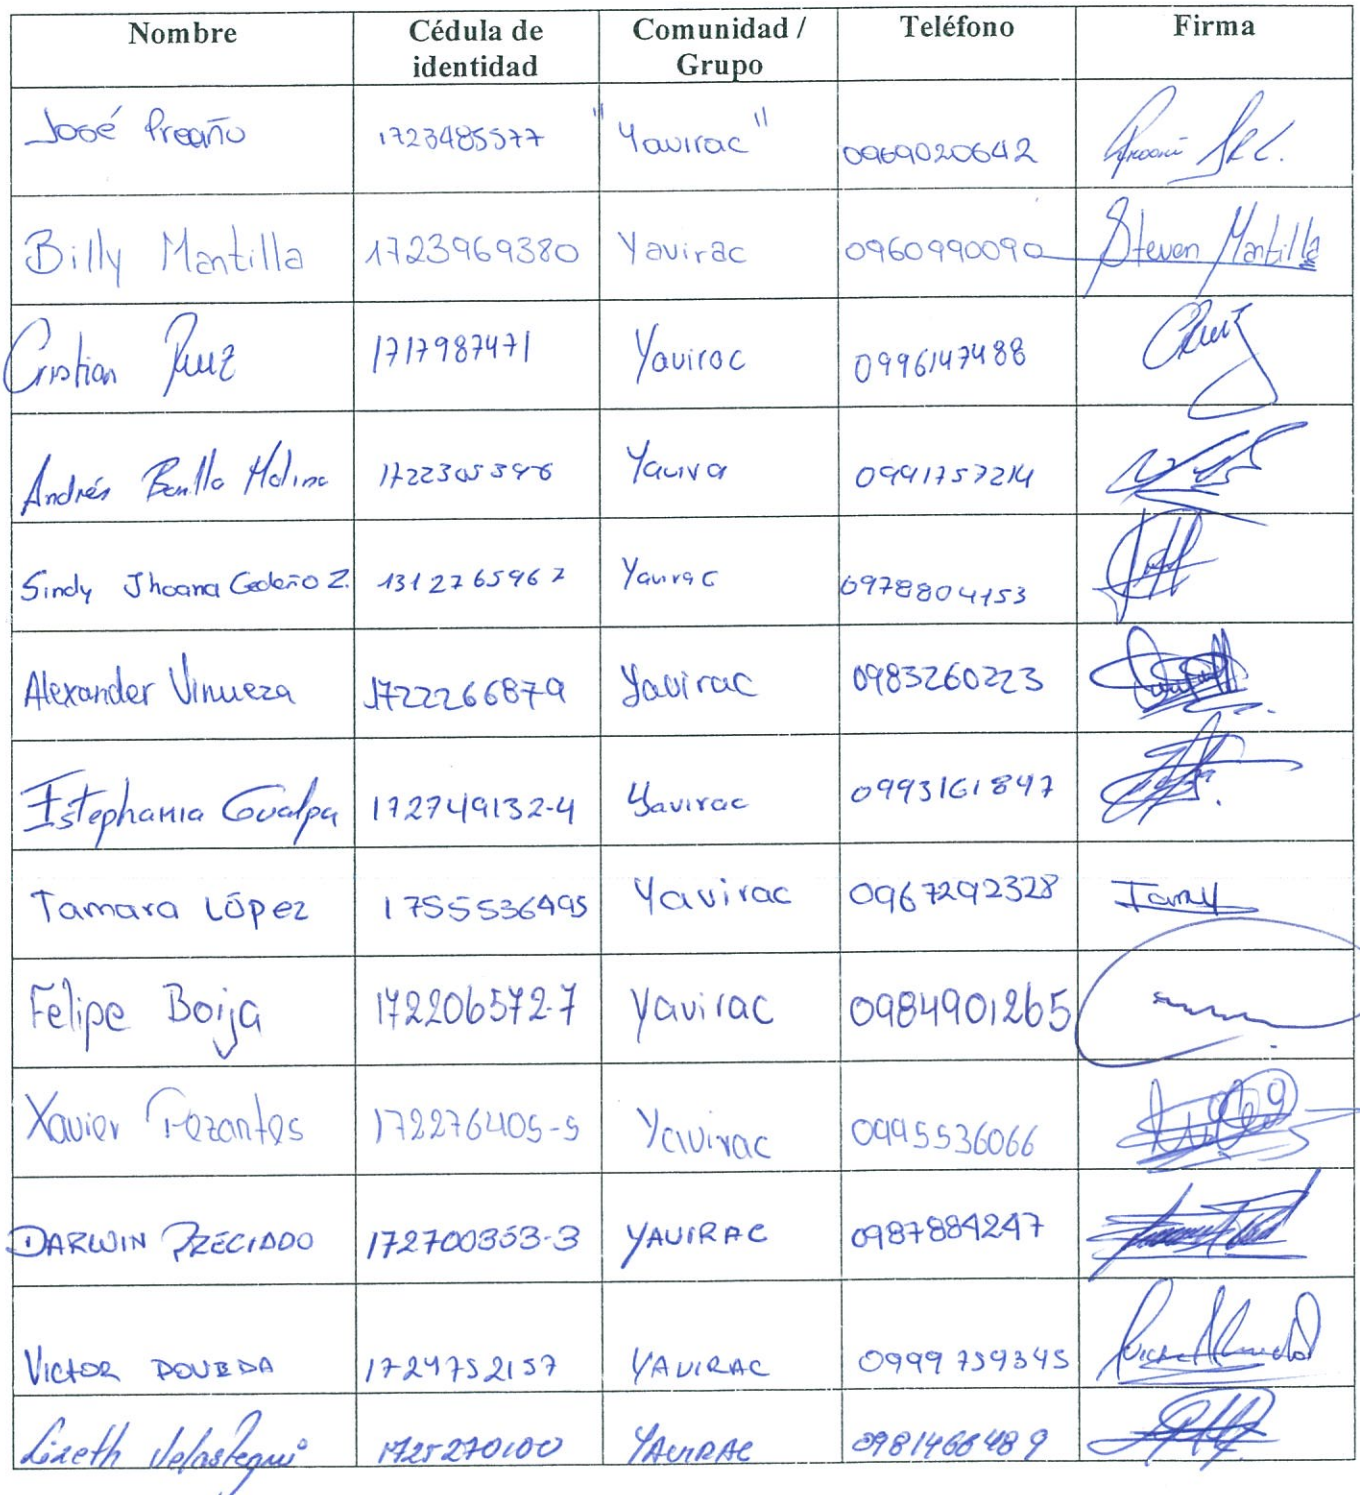 Nombre Cédula de identidad Comunidad / Grupo Teléfono Firma
José 1723485577 "Yavirac" 0969020642
Billy Mantilla 1723969380 Yavirac 0960990090 Steven Mantilla
Cristian Ruiz 1717987471 Yavirac 0996147488 CRuiz
Andrés Molina Yavira 0991757214
Sindy Jhoana Cedeño Z. 1312765967 Yavirac 0978804153
Alexander Vinueza 1722266879 Yavirac 0983260223
Estephania Gualpa 172749132-4 Yavirac 0993161847
Tamara López 1755536495 Yavirac 0967292328 Tamy
Felipe Borja 172206572-7 Yavirac 0984901265
Xavier Pezantes 172276405-5 Yavirac 0995536066
DARWIN PRECIADO 172700353-3 YAVIRAC 0987884247
VICTOR POVEDA 1724752157 YAVIRAC 0999759345
Lizeth Velastegui 1725270100 YAVIRAC 0981466489